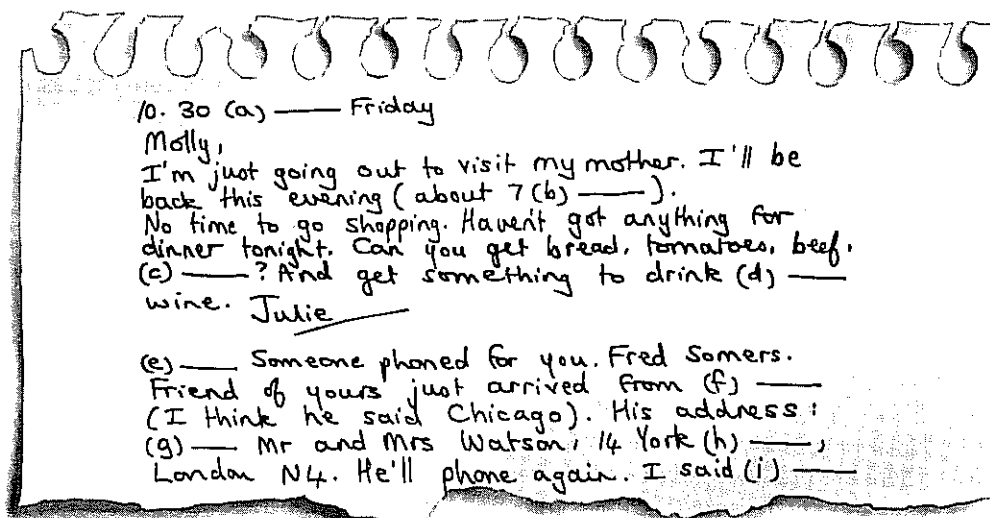 10.30 (a) —— Friday
Molly,
I'm just going out to visit my mother. I'll be
back this evening (about 7 (b) ——).
No time to go shopping. Haven't got anything for
dinner tonight. Can you get bread, tomatoes, beef,
(c) —— ? And get something to drink (d) ——
wine. Julie
(e) —— Someone phoned for you. Fred Somers.
Friend of yours just arrived from (f) ——
(I think he said Chicago). His address:
(g) —— Mr and Mrs Watson, 14 York (h) ——,
London N4. He'll phone again. I said (i) ——